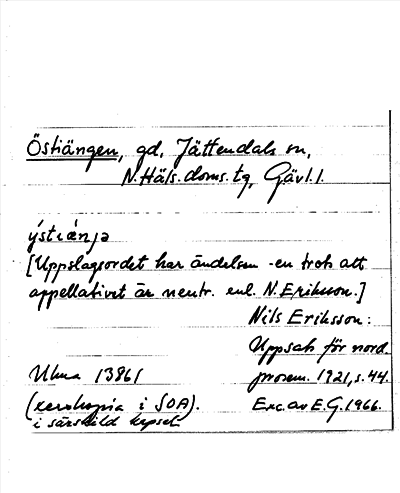 Östiängen, gd, Jättendals sn,
N. Häls. doms. tg, Gävl. l.
ýstiænjə
[Uppslagsordet har ändelsen -en trots att
appellativet är neutr. enl. N. Eriksson.]
Nils Eriksson:
Uppsats för nord.
prosem. 1921, s. 44.
Ulma 13861
(xerokopia i SOA).
i särskild kapsel
Exc. av E.G. 1966.